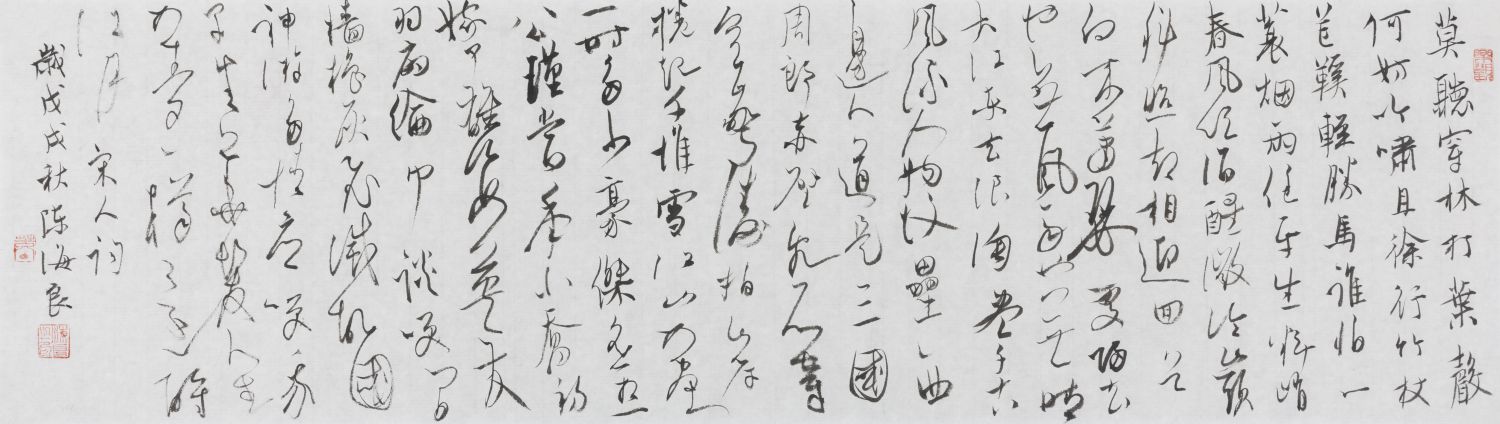 莫聽穿林打葉聲
何妨吟嘯且徐行竹杖
芒鞋輕勝馬誰怕一
蓑烟雨任平生料峭
春風吹酒醒微冷山頭
斜照却相迎回首
向來蕭瑟處歸去
也無風雨也無晴
大江東去浪淘盡千古
風流人物故壘西
邊人道是三國
周郎赤壁亂石穿
空驚濤拍岸
捲起千堆雪江山如畫
一時多少豪傑遥想
公瑾當年小喬初
嫁了雄姿英發
羽扇綸巾談笑間
檣櫓灰飛滅故國
神游多情應笑我
早生華髮人生
如夢一樽還酹
江月 宋人詞
歲戊戌秋陳海良